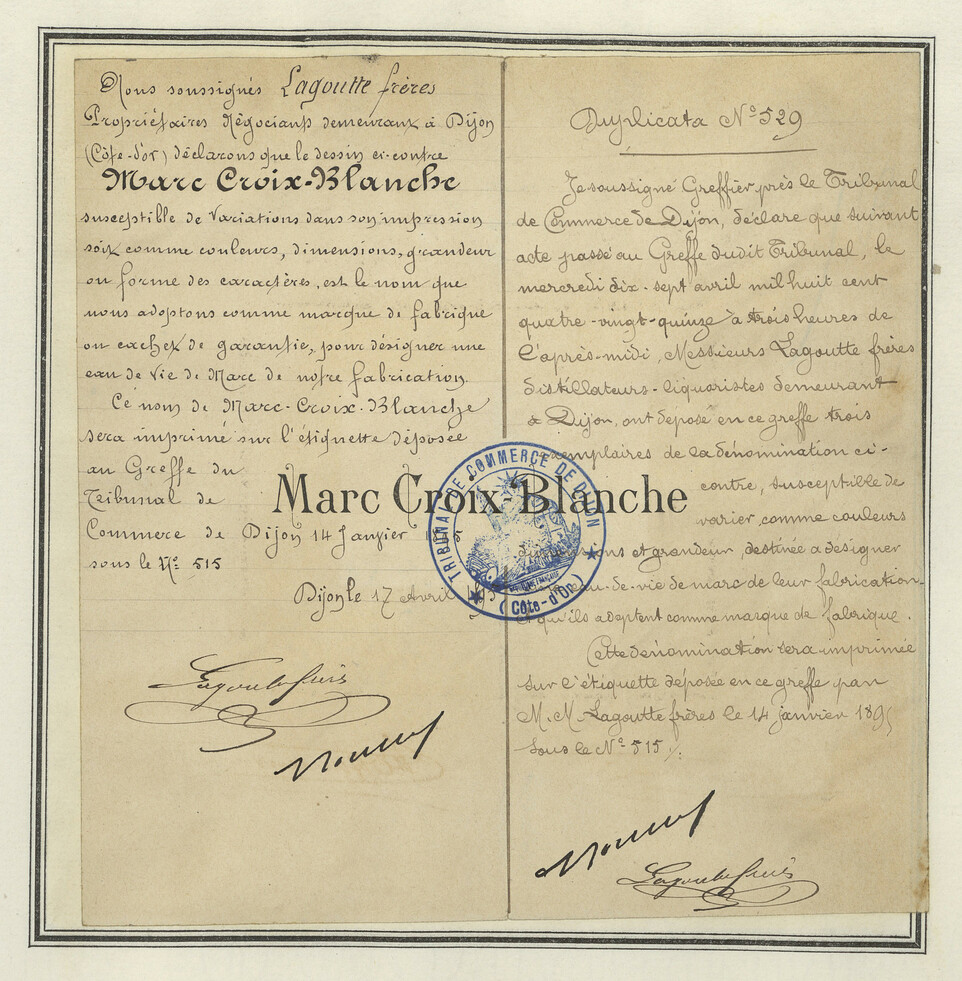 Nous soussignés Lagoutte frères
Propriétaires Négociants demeurant à Dijon
(Côte-d'or) déclarons que le dessin ci-contre
Marc Croix-Blanche
susceptible de variations dans son impression
soit comme couleurs, dimensions, grandeur
ou forme des caractères, est le nom que
nous adoptons comme marque de fabrique
ou cachet de garantie, pour désigner une
eau de vie de Marc de notre fabrication.
Ce nom de Marc-Croix-Blanche
sera imprimé sur l'étiquette déposée
au Greffe du
Tribunal de
Commerce de Dijon 14 Janvier
sous le N° 515
Dijon le 17 Avril
Lagoutte frères
Marc Croix-Blanche
TRIBUNAL DE COMMERCE DE DIJON
(Côte-d'Or)
Duplicata N° 529
Je soussigné Greffier près le Tribunal
de Commerce de Dijon, déclare que suivant
acte passé au Greffe dudit Tribunal, le
mercredi dix-sept avril mil huit cent
quatre-vingt-quinze à trois heures de
l'après-midi, Messieurs Lagoutte frères
distillateurs-liquoristes demeurant
à Dijon, ont déposé en ce greffe trois
exemplaires de la dénomination ci-
contre, susceptible de
varier, comme couleurs
dimensions et grandeur, destinée a désigner
eau-de-vie de marc de leur fabrication
et qu'ils adoptent comme marque de fabrique.
Cette dénomination sera imprimée
sur l'étiquette déposée en ce greffe par
M.M. Lagoutte frères le 14 janvier 1895
sous le N° 515./.
Lagoutte frères